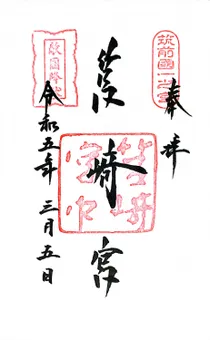 奉拝
筑前國一之宮
筥崎宮
筥崎宮印
敵國降伏
令和五年三月五日